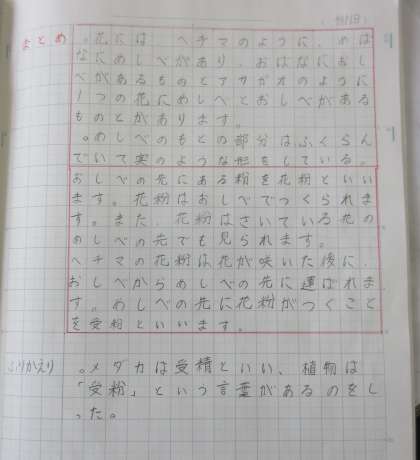 まとめ
。花には ヘチマのように、めば
なにめしべがあり、おばなにおし
べがあるものとアサガオのように
1つの花にめしべとおしべがある
ものとがあります。
。めしべのもとの部分はふくらん
でいて実のような形をしている。
おしべの先にある粉を花粉といい
ます。花粉はおしべでつくられま
す。また、花粉はさいている花の
めしべの先でも見られます。
ヘチマの花粉は花が咲いた後に、
おしべからめしべの先に運ばれま
す。めしべの先に花粉がつくこと
を受粉といいます。
ふりかえり
。メダカは受精といい、植物は
「受粉」という言葉があるのをし
った。